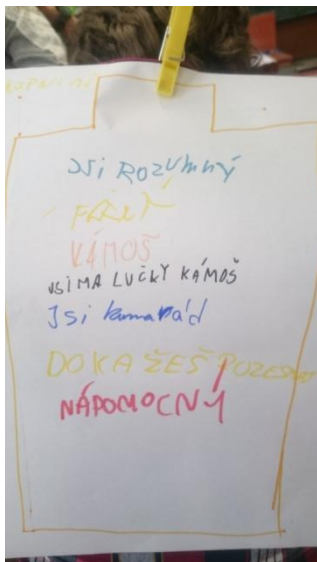 JSi ROZUMNÝ
KÁMOŠ
JSI MA LUČKY KÁMOŠ
Jsi kamarád
DOKAŽEŠ
NÁPOMOCNÝ